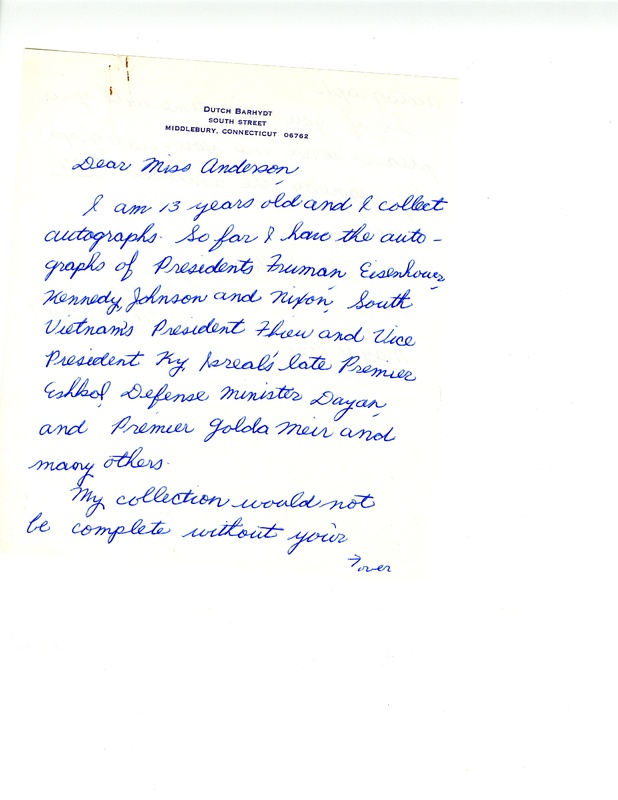 DUTCH BARHYDT
SOUTH STREET
MIDDLEBURY, CONNECTICUT 06762
Dear Miss Anderson,
I am 13 years old and I collect
autographs. So far I have the auto-
graphs of Presidents Truman, Eisenhower,
Kennedy, Johnson and Nixon, South
Vietnam's President Thieu and Vice
President Ky, Isreal's late Premier
Eshkol, Defense Minister Dayan,
and Premier Golda Meir and
many others.
My collection would not
be complete without your's
→ over